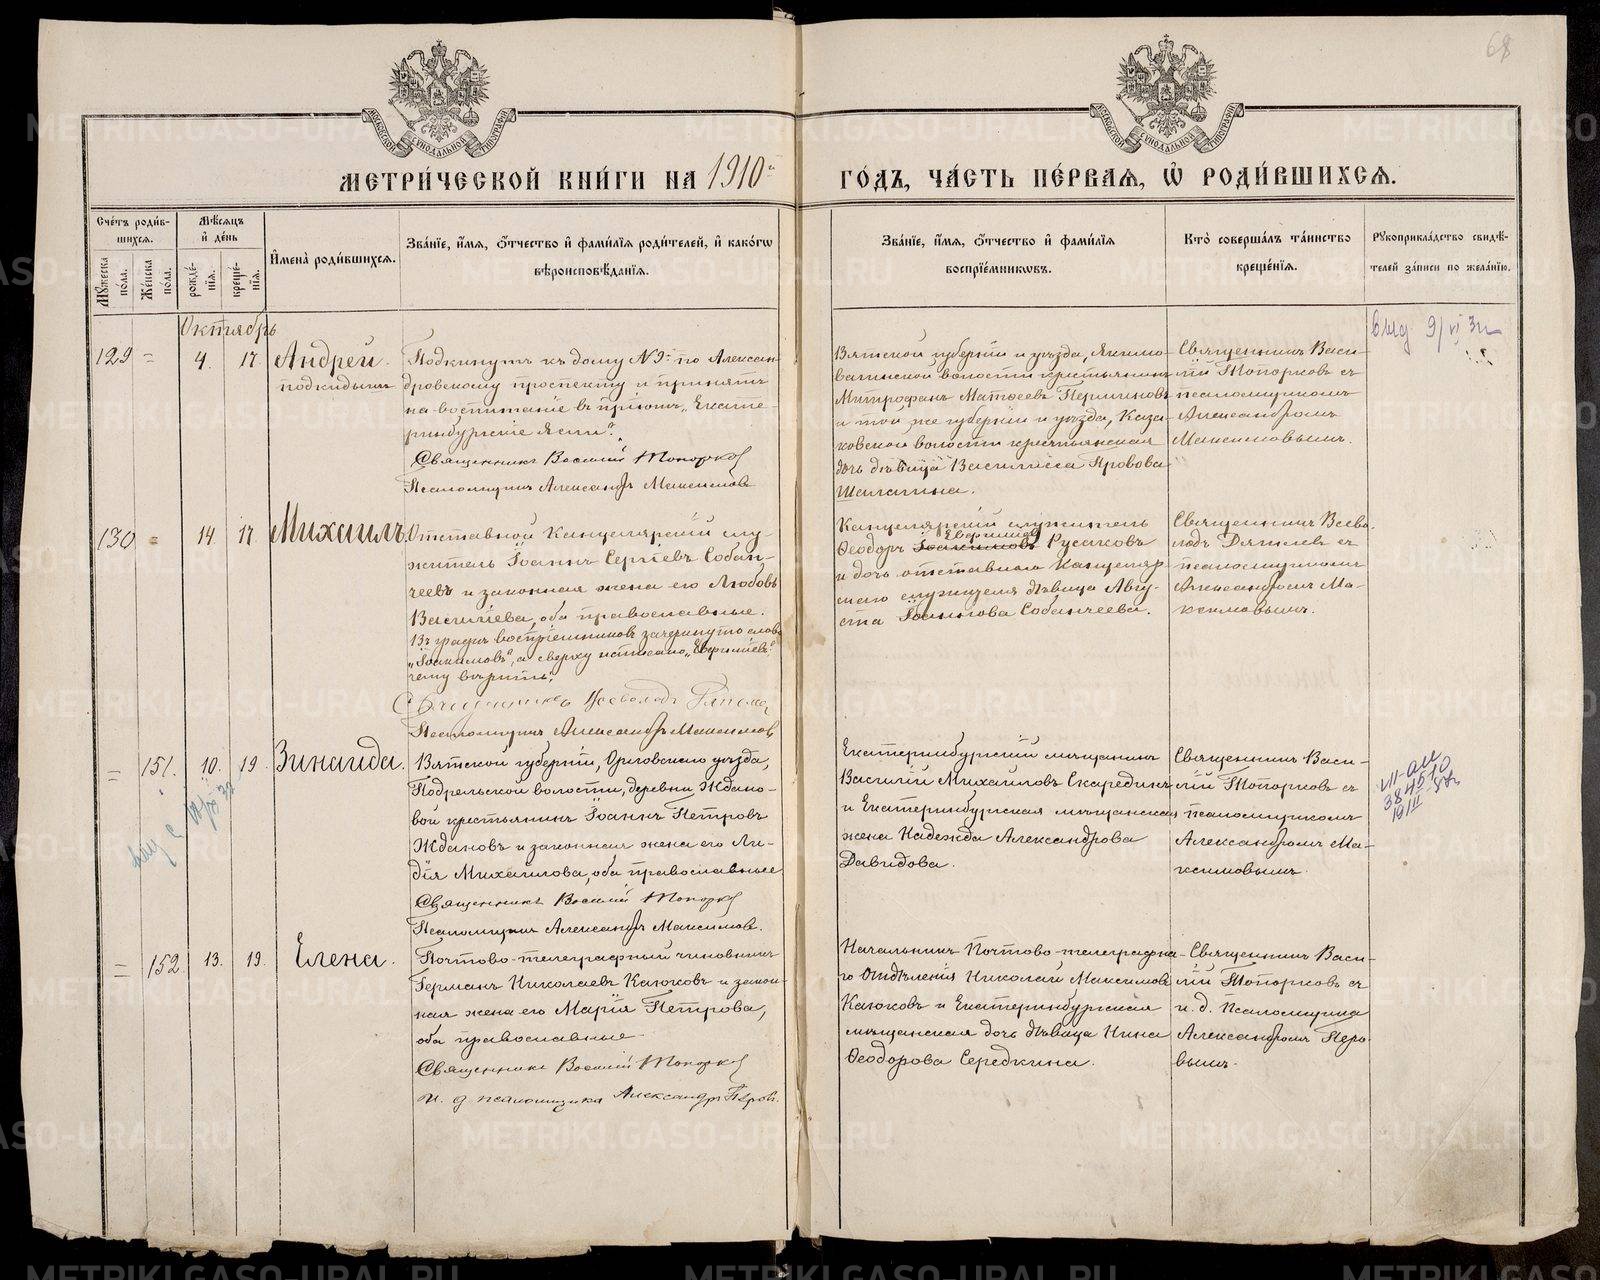 68
МОСКОВСКОЙ СѴНОДАЛЬНОЙ ТИПОГРАФІИ
МОСКОВСКОЙ СѴНОДАЛЬНОЙ ТИПОГРАФІИ
МЕТРИ́ЧЕСКОЙ КНИ́ГИ НА 1910й
ГО́ДЪ, ЧА́СТЬ ПЕ́РВАѦ, Ѡ҆ РОДИ́ВШИХСѦ.
Сче́тъ роди́в-
шихсѧ.
Мꙋ́жеска пола.
Же́нска пола.
Мѣ́сѧцъ
и҆ де́нь
рожде́-нїѧ.
креще́-нїѧ.
И҆мена̀ роди́вшихсѧ.
Зва́нїе, и҆́мѧ, ѻ҆́тчество и҆ фамі́лїѧ роди́телей, и҆ како́гѡ
вѣроисповѣ́данїѧ.
Зва́нїе, и҆́мѧ, ѻ҆́тчество и҆ фамі́лїѧ
воспрїе́мникѡвъ.
Кто̀ соверша́лъ та́инство
креще́нїѧ.
Рꙋкоприкла́дство свидѣ́-
телей за́писи по жела́нїю.
Октябрь
129 = 4. 17. Андрей.
подкидышъ
Подкинутъ къ дому №9й по Алексан-
дровскому проспекту и принятъ
на воспитаніе въ пріютъ „Екате-
ринбургскіе Ясли“.
Священникъ Василій Топорков
Псаломщикъ Александръ Максимовъ
Вятской губерніи и уѣзда, Якимо-
вагинской волости крестьянинъ
Митрофанъ Матѳеевъ Перминовъ
и той же губерніи и уѣзда, Каза-
ковской волости крестьянская
дочь дѣвица Василисса Провова
Шалагина.
Священникъ Васи-
лій Топорковъ съ
псаломщикомъ
Александромъ
Максимовымъ.
130 = 14. 17. Михаилъ.
Отставной Канцелярскій слу-
житель Іоаннъ Сергіевъ Собан-
чеевъ и законная жена его Любовь
Василіева, оба православные.
Въ графѣ воспріемниковъ зачеркнуто слово
„Іоакимовъ“, а сверху написано „Евфиміевъ“
чему вѣрить.
Священникъ Всеволодъ
Псаломщикъ Александръ Максимовъ
Канцелярскій служитель
Евфиміевъ
Ѳеодоръ Іоакимовъ Русаковъ
и дочь отставного Канцеляр-
скаго служителя дѣвица Авгу-
ста Іоаннова Собанчеева.
Священникъ Всево-
лодъ Дягилевъ съ
псаломщикомъ
Александромъ Ма-
ксимовымъ.
= 151. 10. 19. Зинаида.
Вятской губерніи, Орловскаго уѣзда,
Подрельской волости, деревни Ждано-
вой крестьянинъ Іоаннъ Петровъ
Ждановъ и законная жена его Ли-
дія Михаилова, оба православные
Священникъ Василій Топорков
Псаломщикъ Александръ Максимовъ.
Екатеринбургскій мѣщанинъ
Василій Михаиловъ Скарединъ
и Екатеринбургская мѣщанская
жена Надежда Александрова
Давидова.
Священникъ Васи-
лій Топорковъ съ
псаломщикомъ
Александромъ Ма-
ксимовымъ.
= 152. 13. 19. Елена.
Почтово-телеграфный чиновникъ
Германъ Николаевъ Каюковъ и закон-
ная жена его Марія Петрова,
оба православные
Священникъ Василій Топорков
и. д. псаломщика Александръ Перов.
Начальникъ Почтово-телеграфна-
го Отдѣленія Николай Максимовъ
Каюковъ и Екатеринбургская
мѣщанская дочь дѣвица Нина
Ѳеодорова Середкина.
Священникъ Васи-
лій Топорковъ съ
и. д. Псаломщика
Александромъ Перо-
вымъ.
METRIKI.GASO-URAL.RU